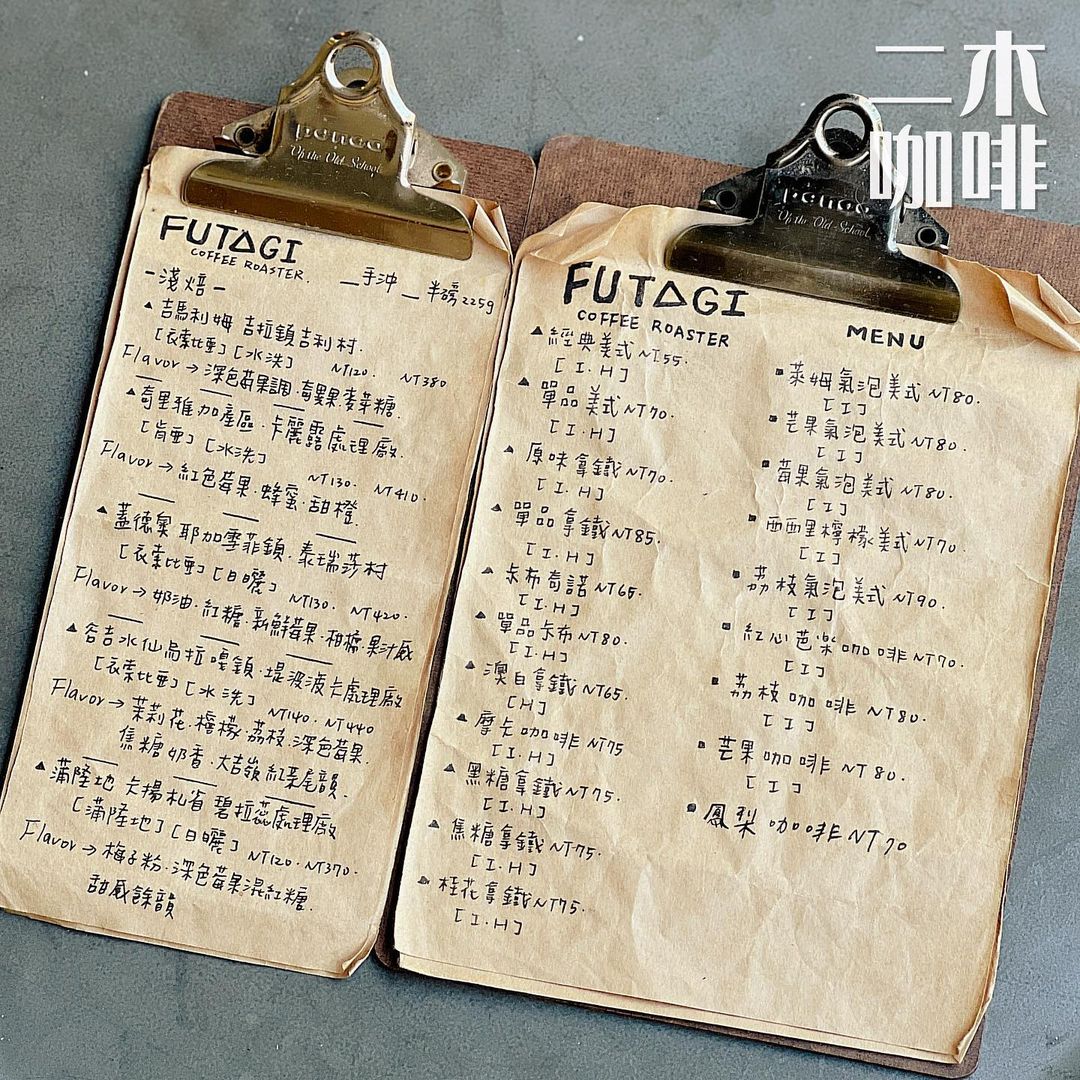 二木
咖啡
penco
Of the Old School
FUTAGI
COFFEE ROASTER
手沖 半磅225g
-淺焙-
吉馬利姆 吉拉鎮吉利村.
[衣索比亞][水洗] NT120. NT380
Flavor→深色莓果調.奇異果麥芽糖.
奇里雅加產區.卡麗露處理廠.
[肯亞][水洗] NT130. NT410.
Flavor→紅色莓果.蜂蜜.甜橙
蓋德奧 耶加雪菲鎮.泰瑞莎村
[衣索比亞][日曬] NT130. NT420.
Flavor→奶油.紅糖.新鮮莓果.柑橘.果汁感
谷吉水仙烏拉嘎鎮.堤波波卡處理廠
[衣索比亞][水洗] NT140. NT440
Flavor→茉莉花.檸檬.荔枝.深色莓果.
焦糖奶香.大吉嶺紅茶尾韻.
蒲隆地 卡揚札省 碧拉蕊處理廠
[蒲隆地][日曬] NT120. NT370.
Flavor→梅子粉.深色莓果混紅糖.
甜感餘韻
penco
Of the Old School
FUTAGI
COFFEE ROASTER
MENU
經典美式 NT55.
[I.H]
單品美式 NT70.
[I.H]
原味拿鐵 NT70.
[I.H]
單品拿鐵 NT85.
[I.H]
卡布奇諾 NT65.
[I.H]
單品卡布 NT80.
[I.H]
澳白拿鐵 NT65.
[H]
摩卡咖啡 NT75
[I.H]
黑糖拿鐵 NT75.
[I.H]
焦糖拿鐵 NT75.
[I.H]
桂花拿鐵 NT75.
[I.H]
萊姆氣泡美式 NT80.
[I]
芒果氣泡美式 NT80.
[I]
莓果氣泡美式 NT80.
[I]
西西里檸檬美式 NT70.
[I]
荔枝氣泡美式 NT90.
[I]
紅心芭樂咖啡 NT70.
[I]
荔枝咖啡 NT80.
[I]
芒果咖啡 NT80.
[I]
鳳梨咖啡 NT70